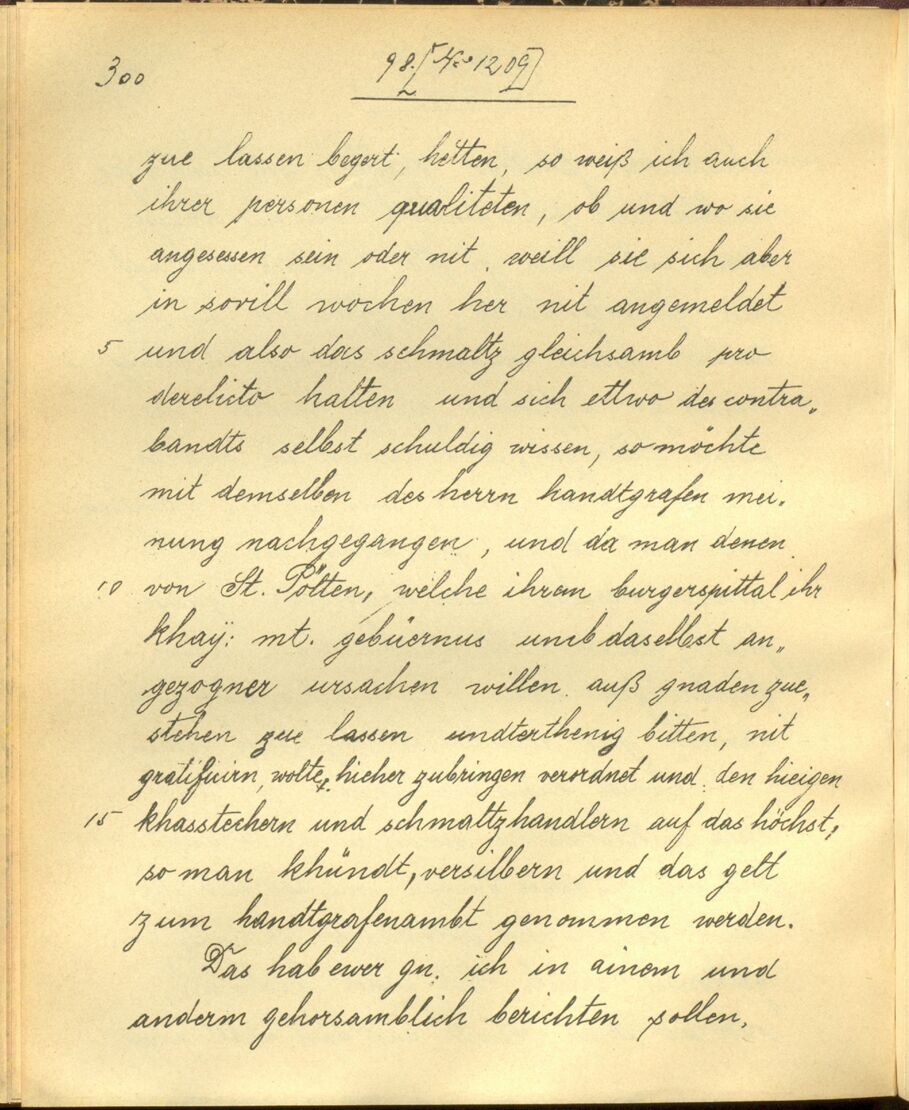 300
98. [No 1209]
zue lassen begert, hetten, so weiß ich auch
ihrer personen qualiteten, ob und wo sie
angesessen sein oder nit, weill sie sich aber
in sovill wochen her nit angemeldet
5 und also das schmaltz gleichsamb pro
derelicto halten und sich ettwo des contra„
bandts selbst schuldig wissen, so möchte
mit demselben des herrn handtgrafen mei„
nung nachgegangen, und da man denen
10 von St. Pölten, welche ihrem burgerspittal ihr
khaÿ: mt. gebüernus umb daselbst an„
gezogner ursachen willen auß gnaden zue„
stehen zue lassen undterthenig bitten, nit
gratificirn, wolte, hieher zubringen verordnet und den hieigen
15 khasstechern und schmaltzhandlern auf das höchst,
so man khündt, versilbern und das gelt
zum handtgrafenambt genommen werden.
Das hab ewer gn. ich in ainem und
anderm gehorsamblich berichten sollen.